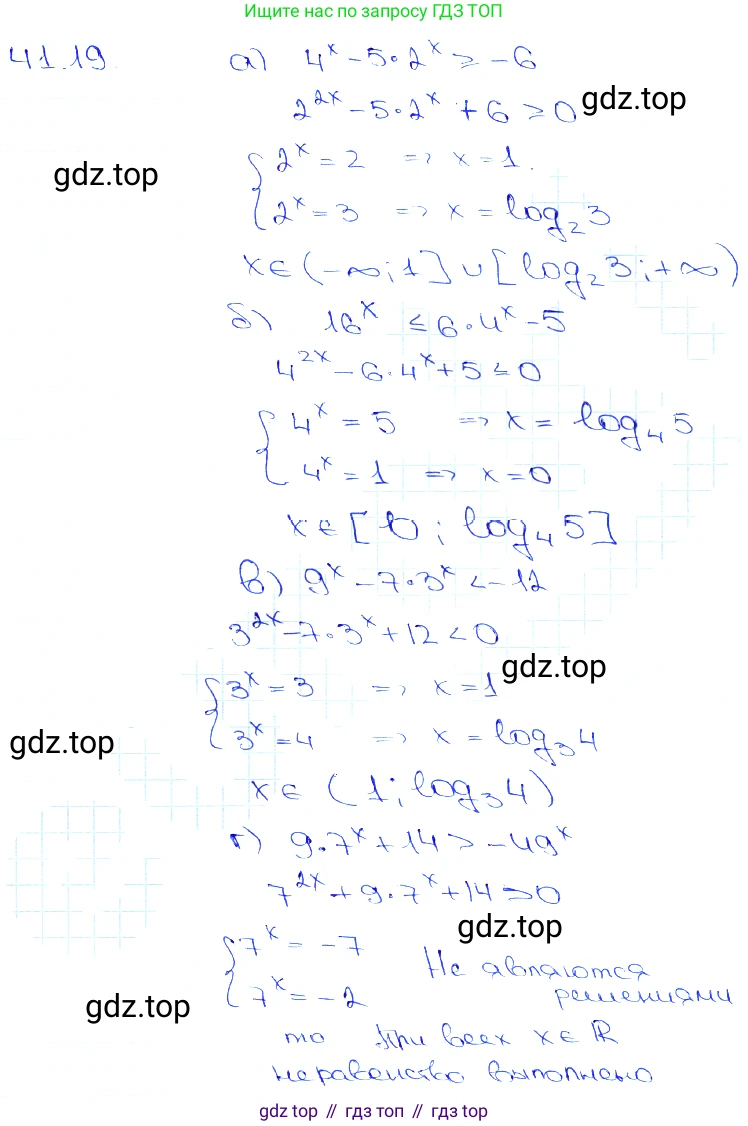 Ищите нас по запросу ГДЗ ТОП
41.19. а) 4^x - 5·2^x ≥ -6
2^2x - 5·2^x + 6 ≥ 0
gdz.top
{ 2^x = 2 => x = 1.
gdz.top
2^x = 3 => x = log₂3
x ∈ (-∞; 1] ∪ [log₂3; +∞)
б) 16^x ≤ 6·4^x - 5
4^2x - 6·4^x + 5 ≤ 0
{ 4^x = 5 => x = log₄5
4^x = 1 => x = 0
x ∈ [0; log₄5]
в) 9^x - 7·3^x < -12
3^2x - 7·3^x + 12 < 0
gdz.top
{ 3^x = 3 => x = 1
3^x = 4 => x = log₃4
gdz.top
x ∈ (1; log₃4)
г) 9·7^x + 14 > -49^x
7^2x + 9·7^x + 14 > 0
gdz.top
{ 7^x = -7
7^x = -2
Не являются
решениями
gdz.top
то при всех x ∈ ℝ
неравенство выполнено
gdz топ // гдз топ // гдз top